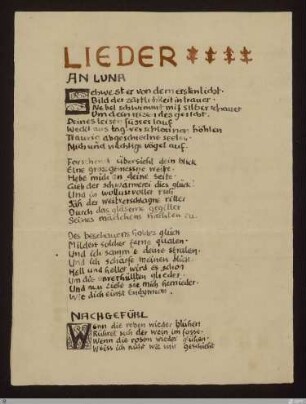 LIEDER
AN LUNA
Schwester von dem ersten licht.
Bild der zärtlichkeit in trauer.
Nebel schwimmt mit silberschauer
Um dein reizendes gesicht.
Deines leisen fusses lauf
Weckt aus tagverschlossnen höhlen
Traurig abgeschiedne seelen.
Mich und nächtige vögel auf.
Forschend übersieht dein blick
Eine grossgemessne weite.
Hebe mich an deine seite
Gieb der schwärmerei dies glück.
Und in wollustvoller ruh
Säh der weitverschlagne ritter
Durch das gläserne gegitter
Seines mädchens nächten zu.
Des beschauens holdes glück
Mildert solcher ferne qualen.
Und ich sammle deine stralen.
Und ich schärfe meinen blick.
Hell und heller wird es schon
Um die unverhüllten glieder.
Und nun ziehe sie mich hernieder.
Wie dich einst Endymion.
NACHGEFÜHL
Wenn die reben wieder blühen
Rühret sich der wein im fasse.
Wenn die rosen wieder glühen
Weiss ich nicht wie mir geschieht